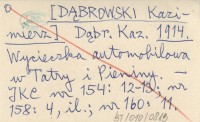 [DĄBROWSKI Kazi-
mierz] Dąbr. Kaz. 1914.
Wycieczka automobilowa
w Tatry i Pieniny. —
JKC nr 154: 12-13; nr
158: 4, il.; nr 160: 11.
BJ/010/0813